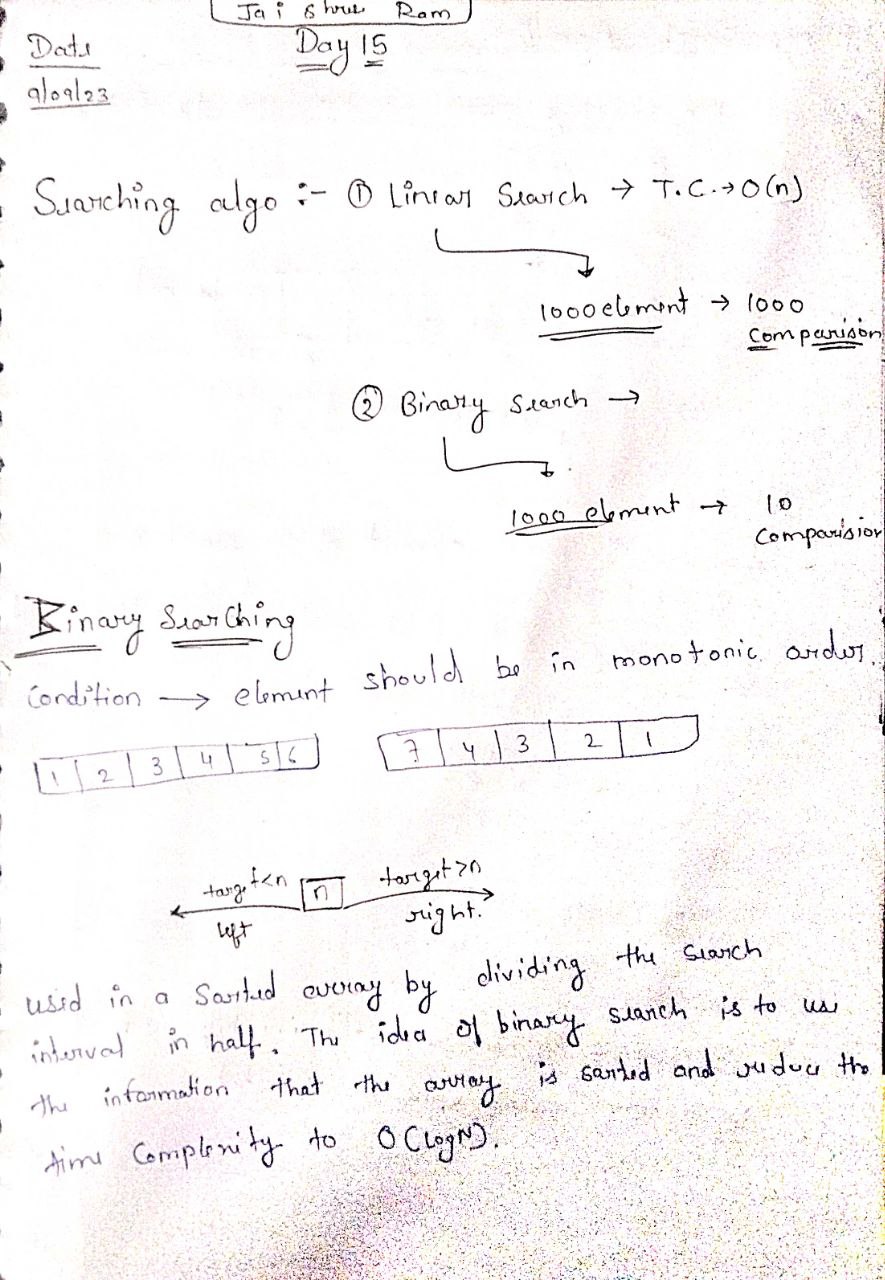 Jai Shree Ram
Day 15
Date
9/09/23
Searching algo :- ① Linear Search → T.C.→O(n)
1000 element → 1000
Comparison
② Binary Search →
1000 element → 10
Comparision
Binary Searching
Condition → element should be in monotonic order.
1 2 3 4 5 6
7 4 3 2 1
target<n n target>n
left right.
used in a Sorted array by dividing the search
interval in half. The idea of binary search is to use
the information that the array is sorted and reduce the
time Complexity to O(logN).